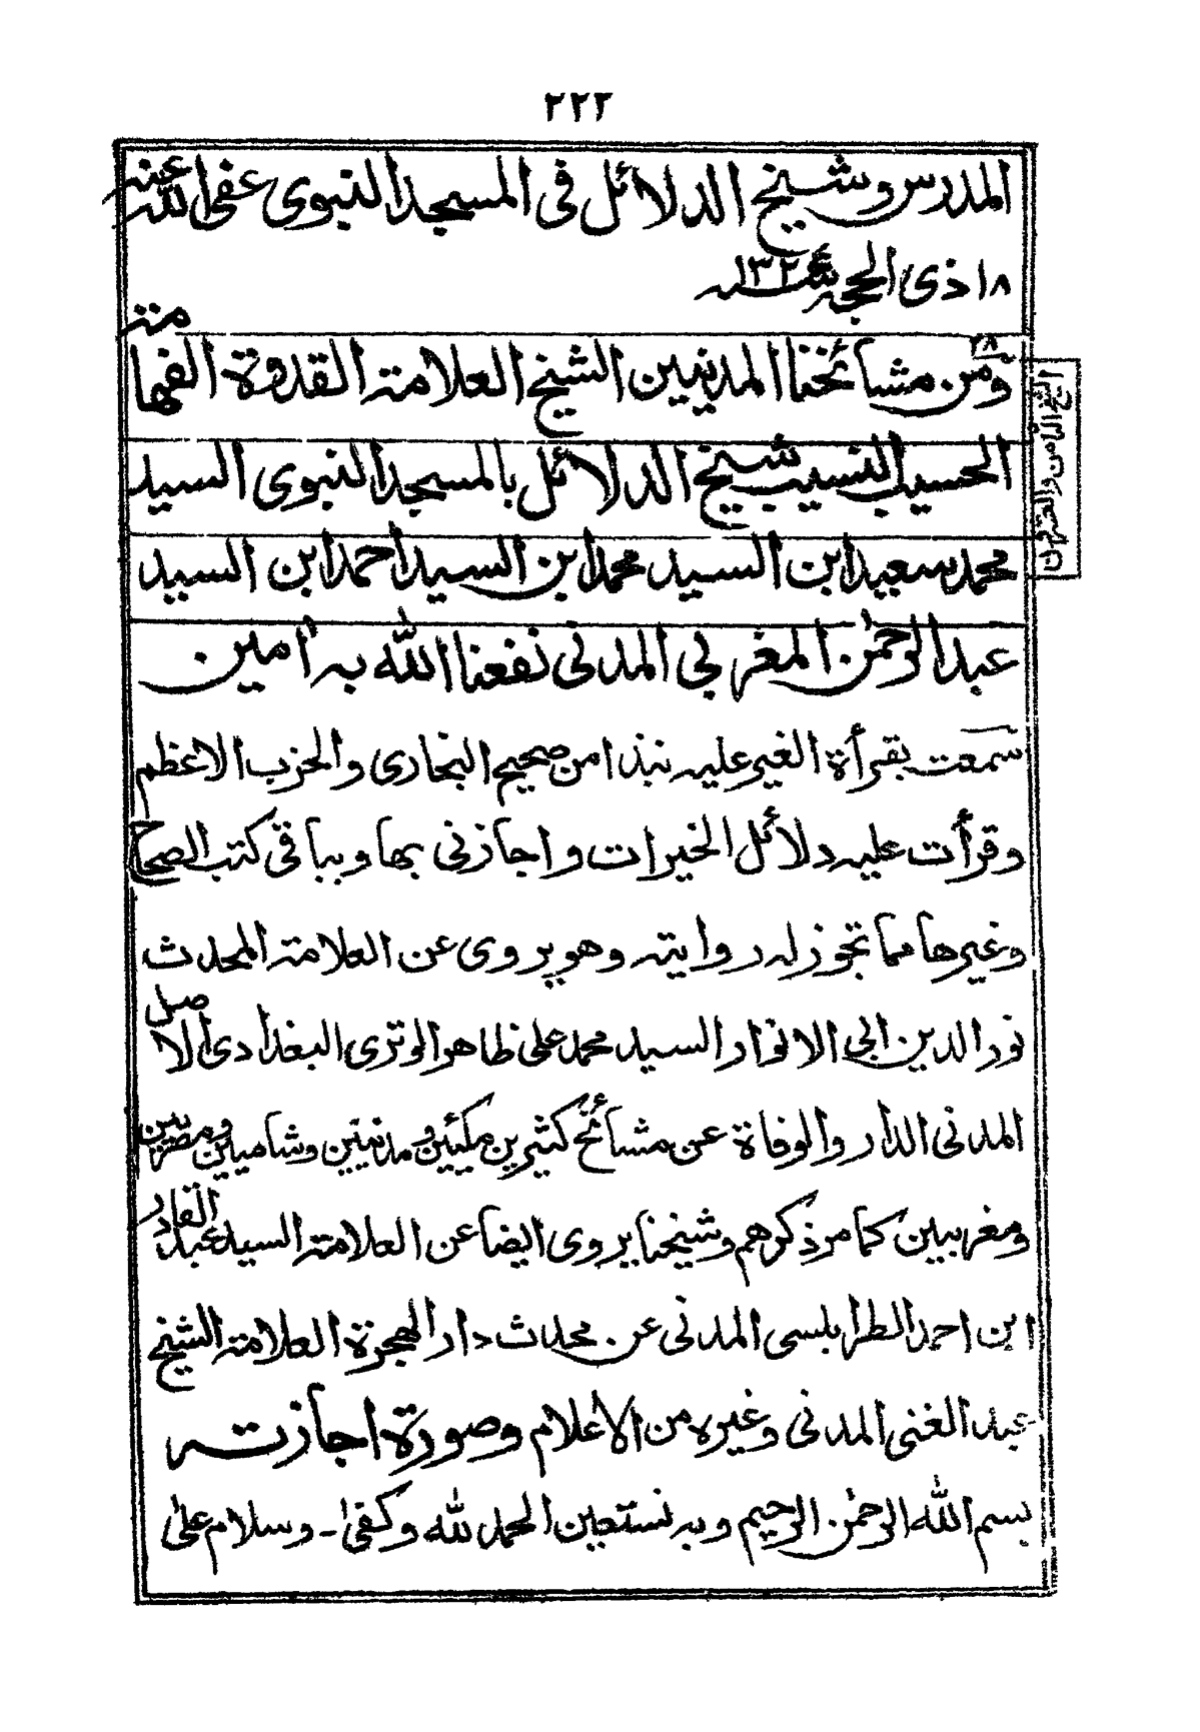 ٢٢٢
المدرس وشيخ الدلائل في المسجد النبوى عفى الله عنه
١٨ ذى الحجه سنه ١٣٢٤
٢٨ ومن مشائخنا المدنيين الشيخ العلامة القدوة الفهامة
الحسيب النسيب شيخ الدلائل بالمسجد النبوى السيد
محمد سعيد ابن السيد محمد ابن السيد احمد ابن السيد
عبد الرحمٰن المغربي المدنى نفعنا الله به اٰمين
الشيخ الثامن والعشرون
سمعت بقرأة الغير عليه نبذا من صحيح البخارى والحزب الاعظم
وقرأت عليه دلائل الخيرات واجازنى بها وبباقى كتب الصحاح
وغيرها مما تجوز له روايته وهو يروى عن العلامة المحدث
نور الدين ابي الانوار السيد محمد على ظاهر الوترى البغدادى الاصل
المدنى الدار والوفاة عن مشائخ كثيرين مكيين ومدنيين وشاميين ومصريين
ومغربيين كما مر ذكرهم وشيخنا يروى ايضا عن العلامة السيد عبد القادر
ابن احمد الطرابلسى المدنى عن محدث دار الهجرة العلامة الشيخ
عبد الغنى المدنى وغيره من الاعلام وصورة اجازته
بسم الله الرحمٰن الرحيم وبه نستعين الحمد لله وكفىٰ - وسلام علىٰ